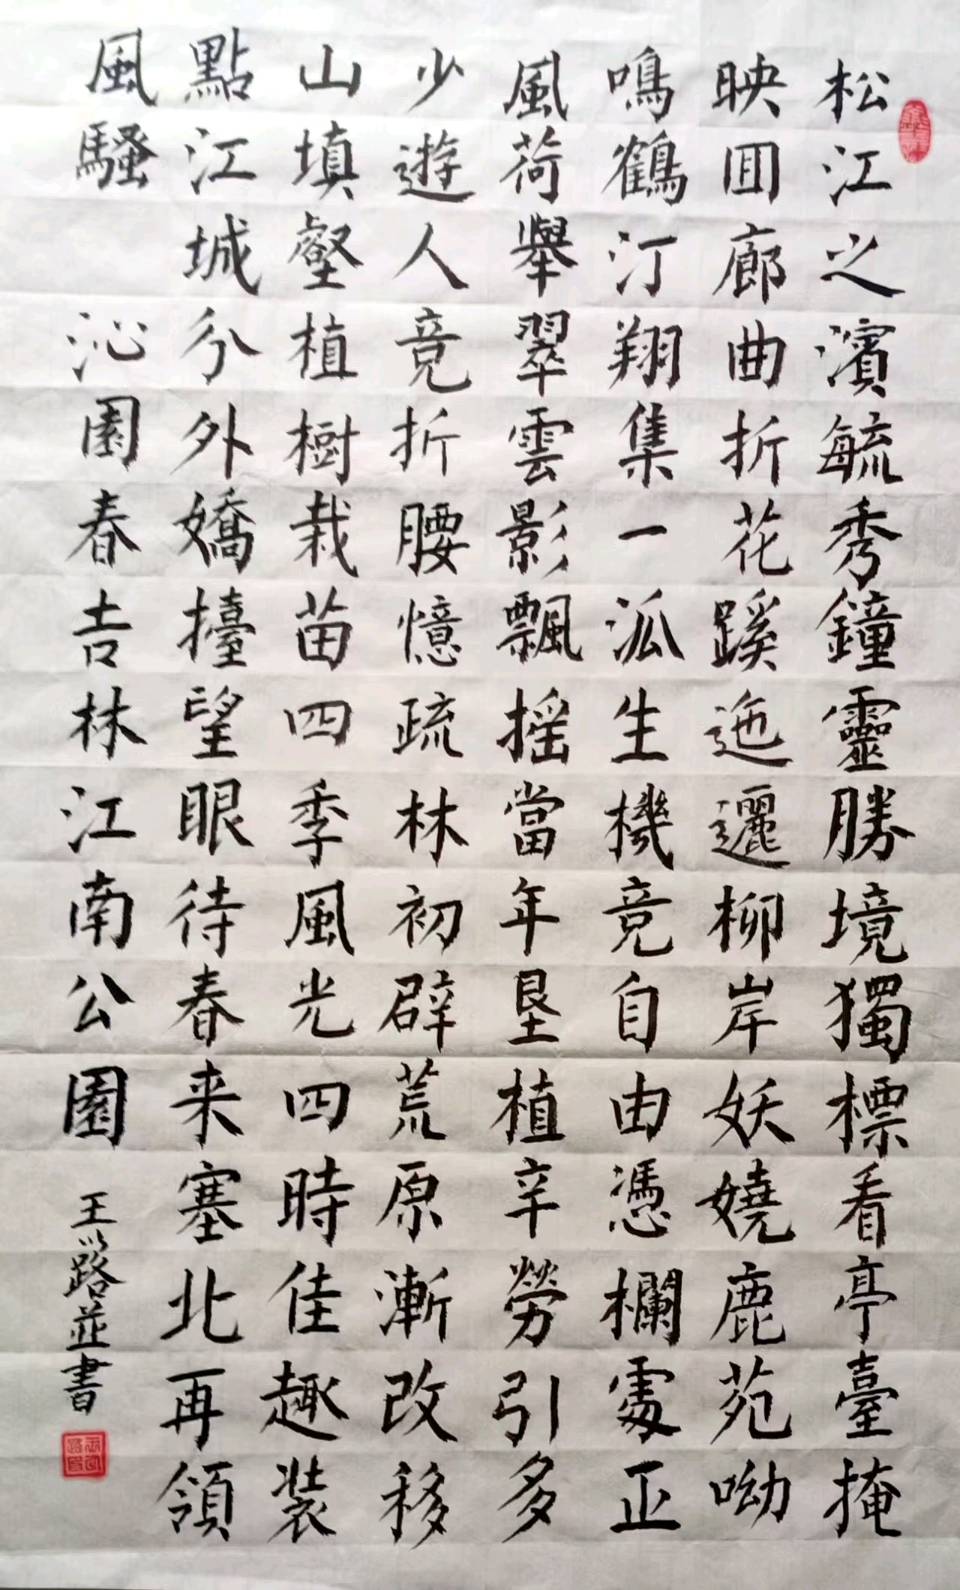 松江之濱毓秀鐘靈勝境獨標看亭臺掩
映回廊曲折花蹊迤邐柳岸妖嬈鹿苑呦
鳴鶴汀翔集一泒生機竞自由憑欄處正
風荷舉翠雲影飄摇當年垦植辛勞引多
少遊人竟折腰憶疏林初辟荒原漸改移
山填壑植樹栽苗四季風光四時佳趣装
點江城分外嬌擡望眼待春来塞北再領
風騷
沁園春吉林江南公園
王以路並書